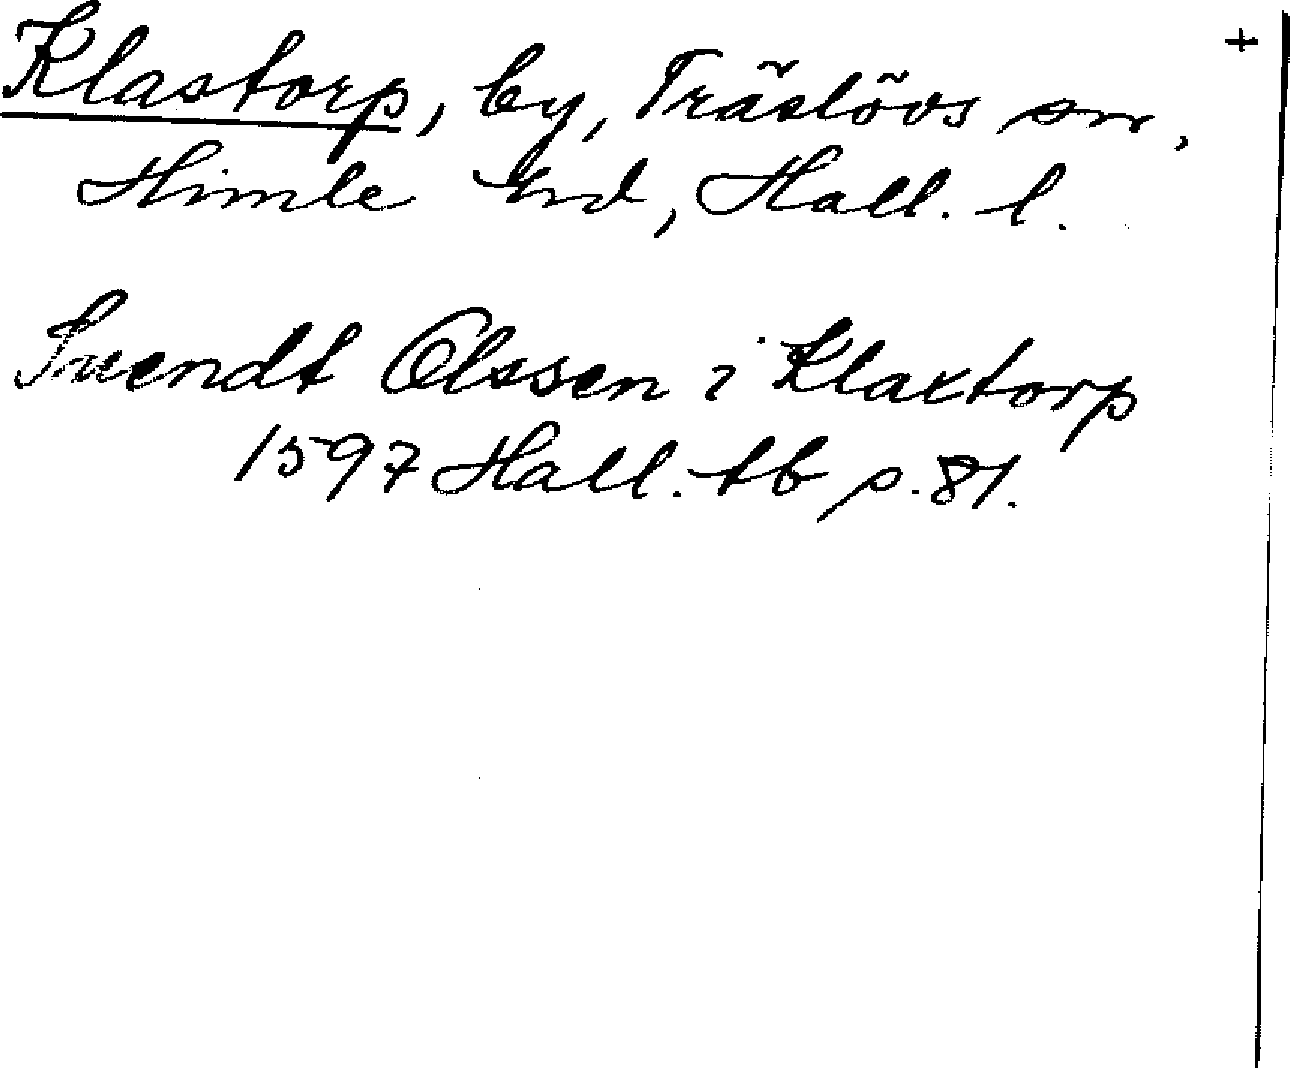 Klastorp, by, Träslövs sn, +
Himle hd, Hall. l.
Suendt Olssen i Klaxtorp
1597 Hall. tb s. 81.